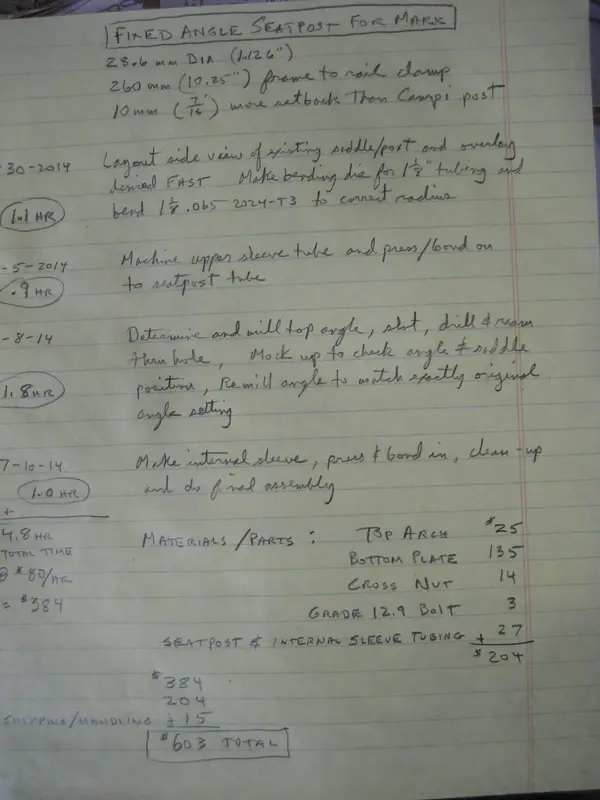 FIXED ANGLE SEATPOST FOR MARK
28.6 mm DIA (1.126")
260 mm (10.25") frame to rail clamp
10 mm (7/16") more setback than Campi post
-30-2014 Layout side view of existing saddle/post and overlay
desired FAST Make bending die for 1 1/8" tubing and
1.1 HR bend 1 1/8 .065 2024-T3 to correct radius
-5-2014 Machine upper sleeve tube and press/bond on
.9 HR to seatpost tube
-8-14 Determine and mill top angle, slot, drill & ream
thru hole, Mock up to check angle & saddle
1.8 HR position, Remill angle to match exactly original
angle setting
7-10-14 Make internal sleeve, press & bond in, clean-up
1.0 HR and do final assembly
+
4.8 HR MATERIALS/PARTS: TOP ARCH $25
TOTAL TIME BOTTOM PLATE 135
@ $80/HR CROSS NUT 14
= $384 GRADE 12.9 BOLT 3
SEATPOST & INTERNAL SLEEVE TUBING + 27
$204
$384
204
SHIPPING/HANDLING + 15
$603 TOTAL